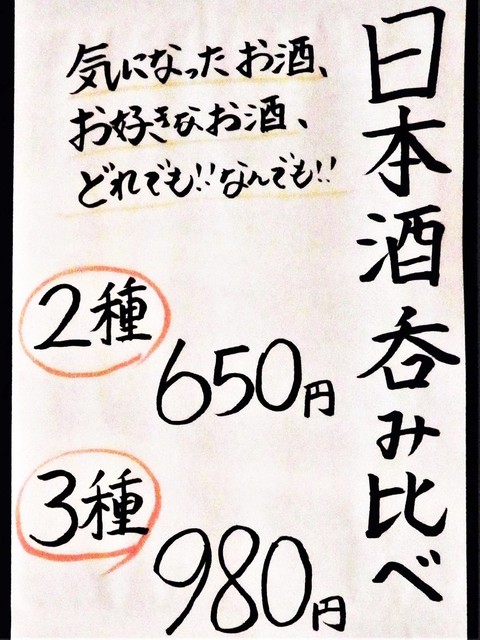 日本酒呑み比べ
気になったお酒、
お好きなお酒、
どれでも!!なんでも!!
2種
650円
3種
980円